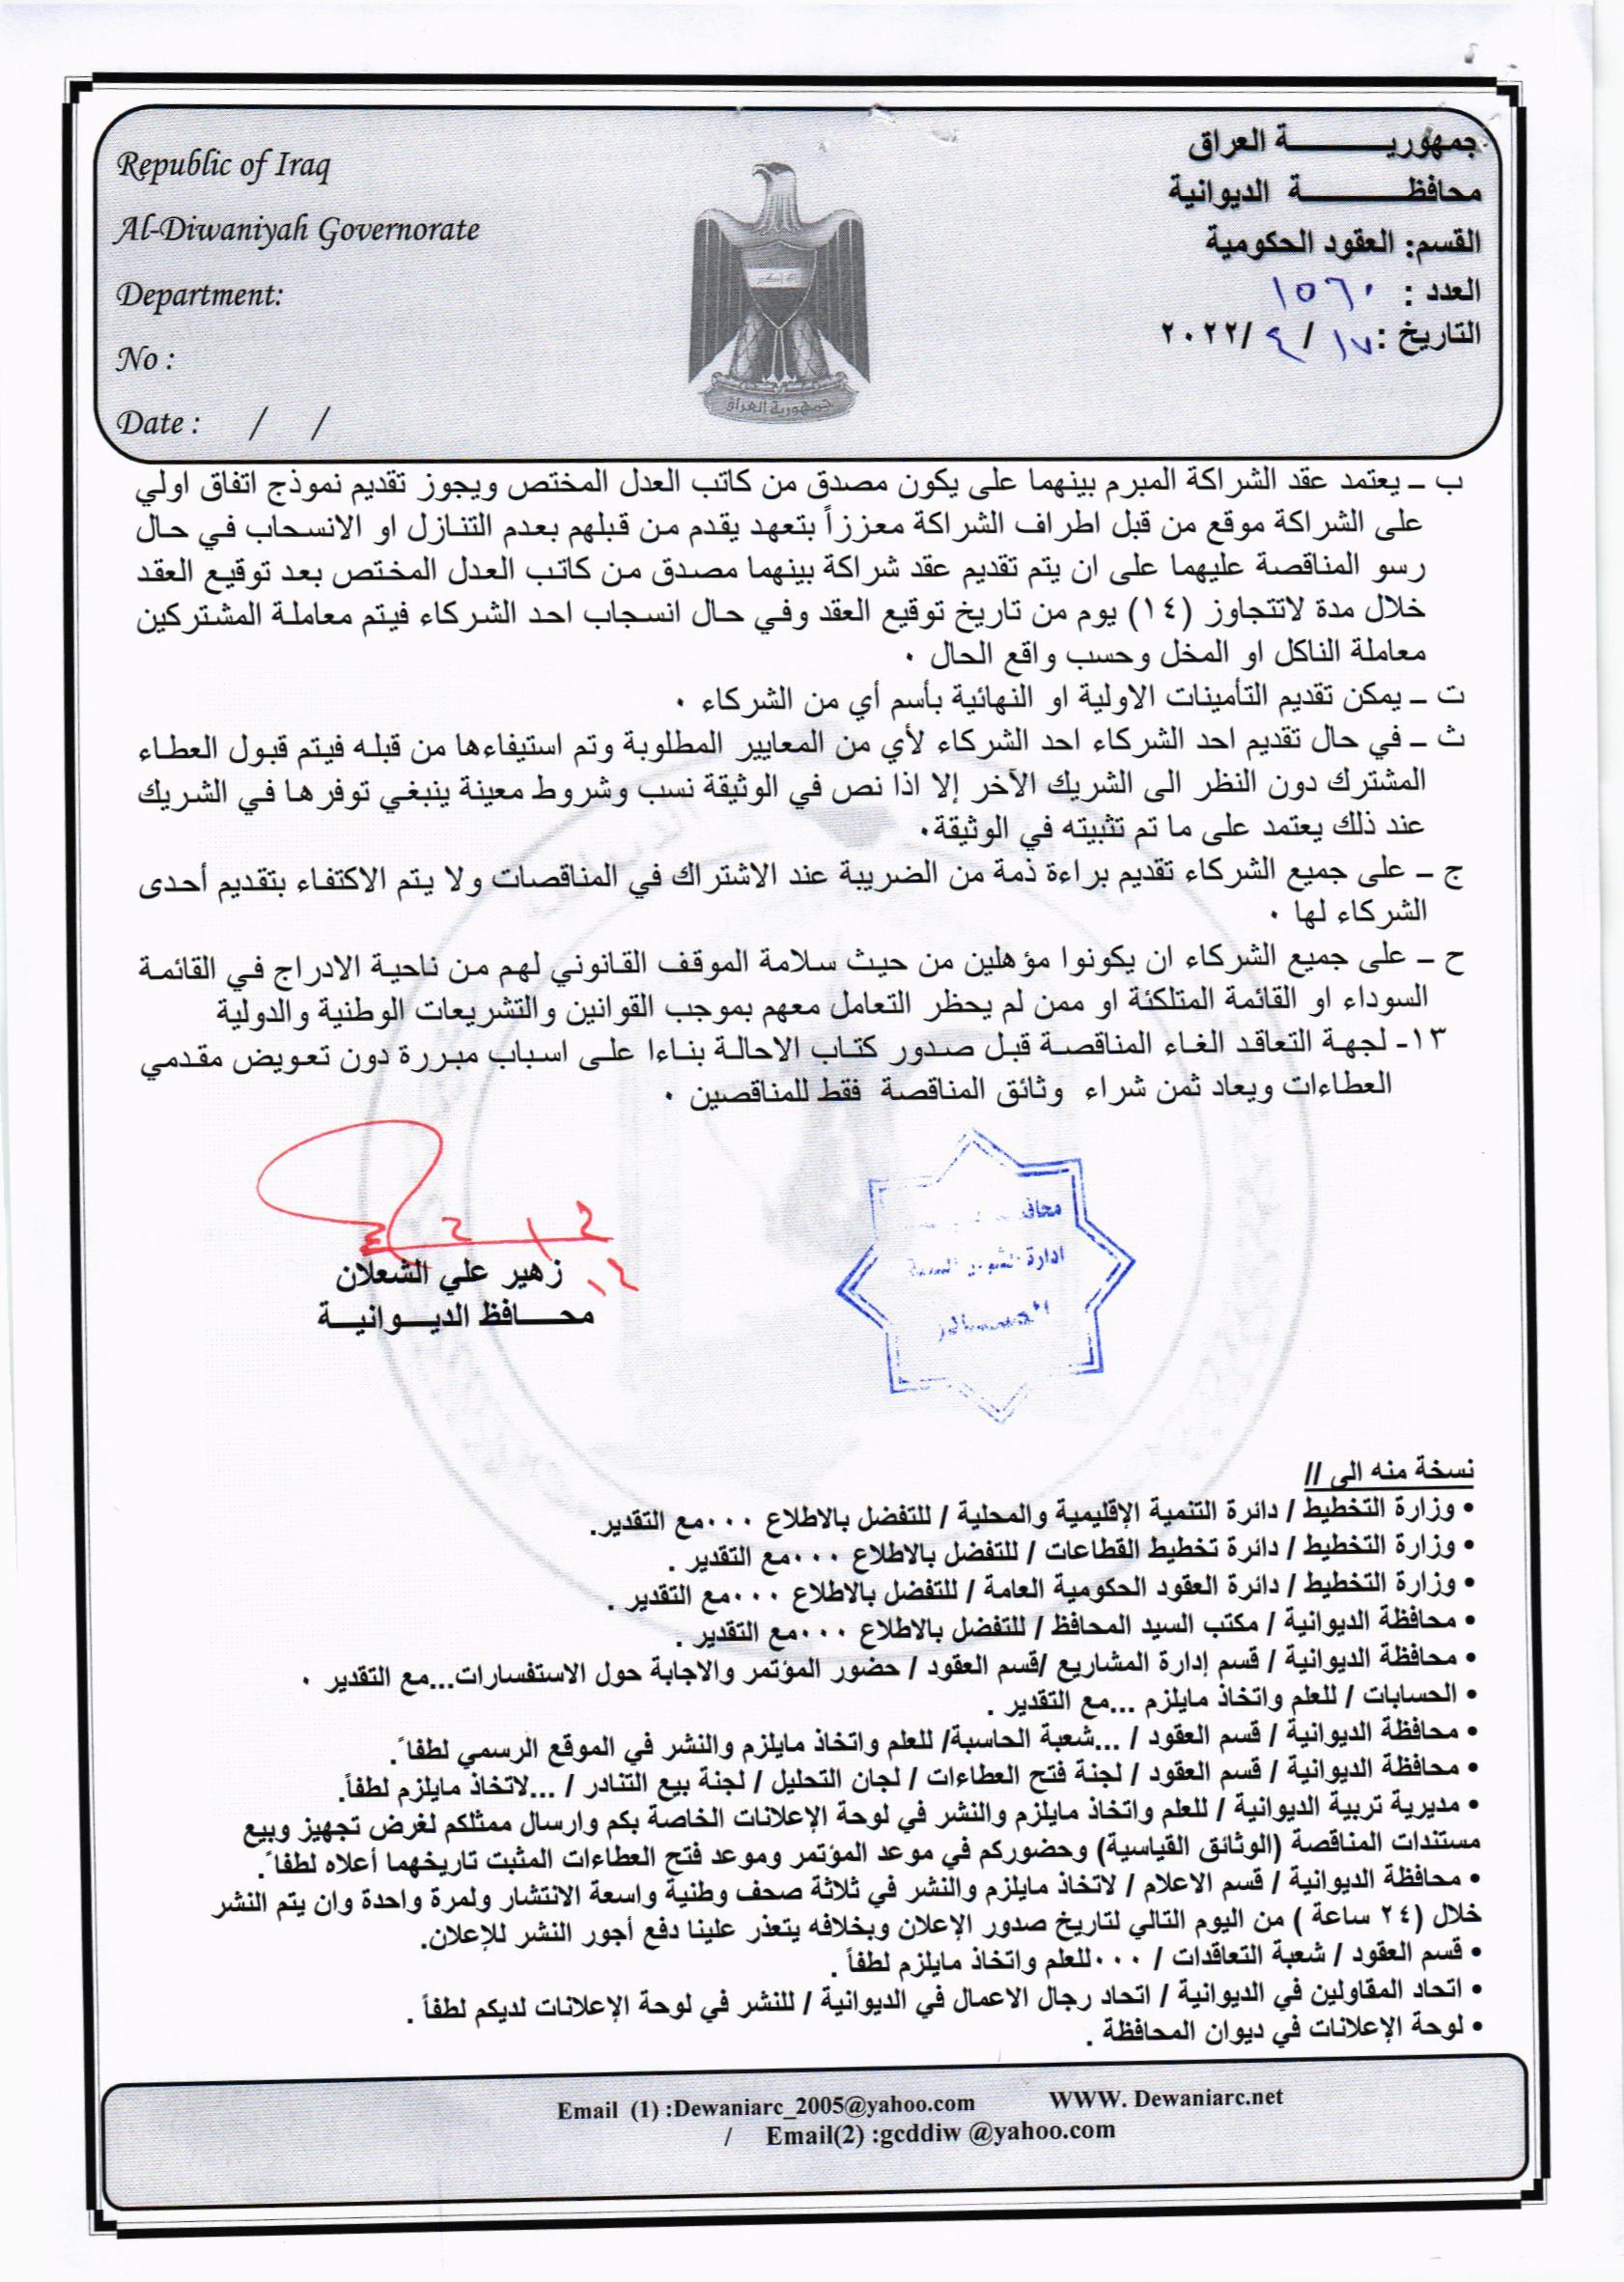 Republic of Iraq
Al-Diwaniyah Governorate
Department:
No :
Date :    /    /
جمهوريـــــــة العراق
محافظـــــــة الديوانية
القسم: العقود الحكومية
العدد : ١٥٦٠
التاريخ : ١٧ / ٤ /٢٠٢٢
جمهورية العراق
ب – يعتمد عقد الشراكة المبرم بينهما على يكون مصدق من كاتب العدل المختص ويجوز تقديم نموذج اتفاق اولي
على الشراكة موقع من قبل اطراف الشراكة معززاً بتعهد يقدم من قبلهم بعدم التنازل او الانسحاب في حال
رسو المناقصة عليهما على ان يتم تقديم عقد شراكة بينهما مصدق من كاتب العدل المختص بعد توقيع العقد
خلال مدة لاتتجاوز (١٤) يوم من تاريخ توقيع العقد وفي حال انسجاب احد الشركاء فيتم معاملة المشتركين
معاملة الناكل او المخل وحسب واقع الحال ٠
ت – يمكن تقديم التأمينات الاولية او النهائية بأسم أي من الشركاء ٠
ث – في حال تقديم احد الشركاء احد الشركاء لأي من المعايير المطلوبة وتم استيفاءها من قبله فيتم قبول العطاء
المشترك دون النظر الى الشريك الآخر إلا اذا نص في الوثيقة نسب وشروط معينة ينبغي توفرها في الشريك
عند ذلك يعتمد على ما تم تثبيته في الوثيقة٠
ج – على جميع الشركاء تقديم براءة ذمة من الضريبة عند الاشتراك في المناقصات ولا يتم الاكتفاء بتقديم أحدى
الشركاء لها ٠
ح – على جميع الشركاء ان يكونوا مؤهلين من حيث سلامة الموقف القانوني لهم من ناحية الادراج في القائمة
السوداء او القائمة المتلكئة او ممن لم يحظر التعامل معهم بموجب القوانين والتشريعات الوطنية والدولية
١٣- لجهة التعاقد الغاء المناقصة قبل صدور كتاب الاحالة بناءا على اسباب مبررة دون تعويض مقدمي
العطاءات ويعاد ثمن شراء وثائق المناقصة فقط للمناقصين ٠
زهير علي الشعلان
محـــافظ الديـــوانيـــة
ادارة
نسخة منه الى //
• وزارة التخطيط / دائرة التنمية الإقليمية والمحلية / للتفضل بالاطلاع ٠٠٠مع التقدير.
• وزارة التخطيط / دائرة تخطيط القطاعات / للتفضل بالاطلاع ٠٠٠مع التقدير .
• وزارة التخطيط / دائرة العقود الحكومية العامة / للتفضل بالاطلاع ٠٠٠مع التقدير .
• محافظة الديوانية / مكتب السيد المحافظ / للتفضل بالاطلاع ٠٠٠مع التقدير .
• محافظة الديوانية / قسم إدارة المشاريع /قسم العقود / حضور المؤتمر والاجابة حول الاستفسارات...مع التقدير ٠
• الحسابات / للعلم واتخاذ مايلزم ...مع التقدير .
• محافظة الديوانية / قسم العقود / ...شعبة الحاسبة/ للعلم واتخاذ مايلزم والنشر في الموقع الرسمي لطفاً .
• محافظة الديوانية / قسم العقود / لجنة فتح العطاءات / لجان التحليل / لجنة بيع التنادر / ...لاتخاذ مايلزم لطفاً.
• مديرية تربية الديوانية / للعلم واتخاذ مايلزم والنشر في لوحة الإعلانات الخاصة بكم وارسال ممثلكم لغرض تجهيز وبيع
مستندات المناقصة (الوثائق القياسية) وحضوركم في موعد المؤتمر وموعد فتح العطاءات المثبت تاريخهما أعلاه لطفاً .
• محافظة الديوانية / قسم الاعلام / لاتخاذ مايلزم والنشر في ثلاثة صحف وطنية واسعة الانتشار ولمرة واحدة وان يتم النشر
خلال (٢٤ ساعة ) من اليوم التالي لتاريخ صدور الإعلان وبخلافه يتعذر علينا دفع أجور النشر للإعلان.
• قسم العقود / شعبة التعاقدات / ٠٠٠للعلم واتخاذ مايلزم لطفاً .
• اتحاد المقاولين في الديوانية / اتحاد رجال الاعمال في الديوانية / للنشر في لوحة الإعلانات لديكم لطفاً .
• لوحة الإعلانات في ديوان المحافظة .
Email (1) :Dewaniarc_2005@yahoo.com    WWW. Dewaniarc.net
/    Email(2) :gcddiw @yahoo.com